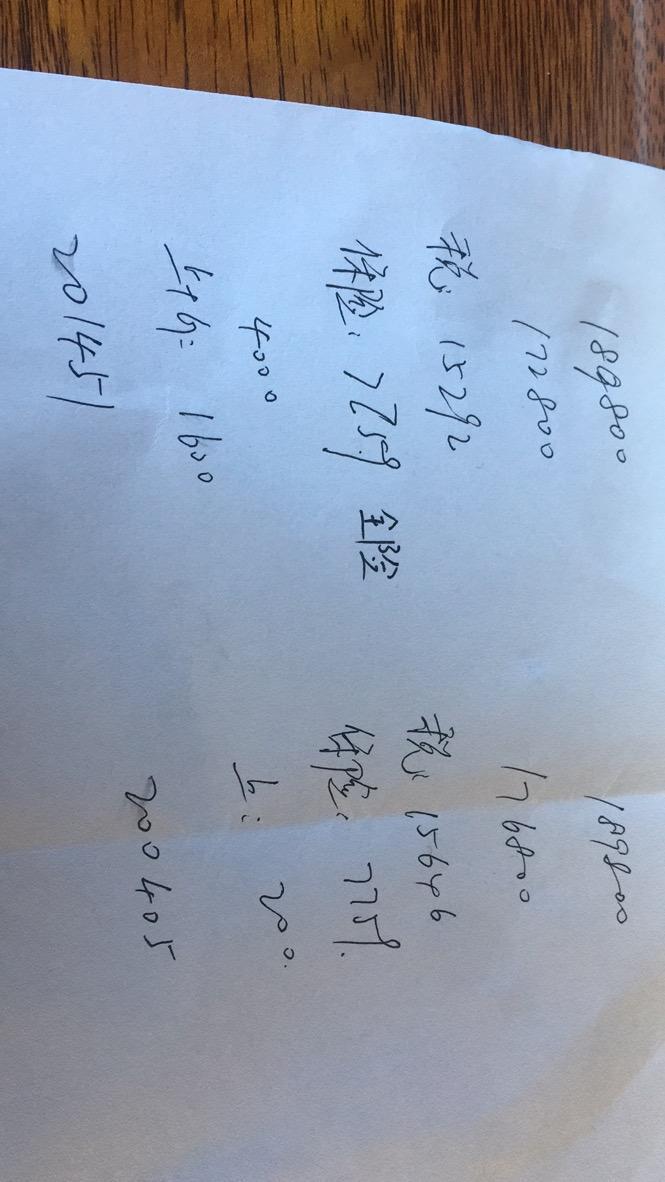 189800
172800
税: 15292
保险: 7759 全险
4000
上牌: 1600
201451
189800
176800
税: 15646
保险: 7759
上: 200
200405